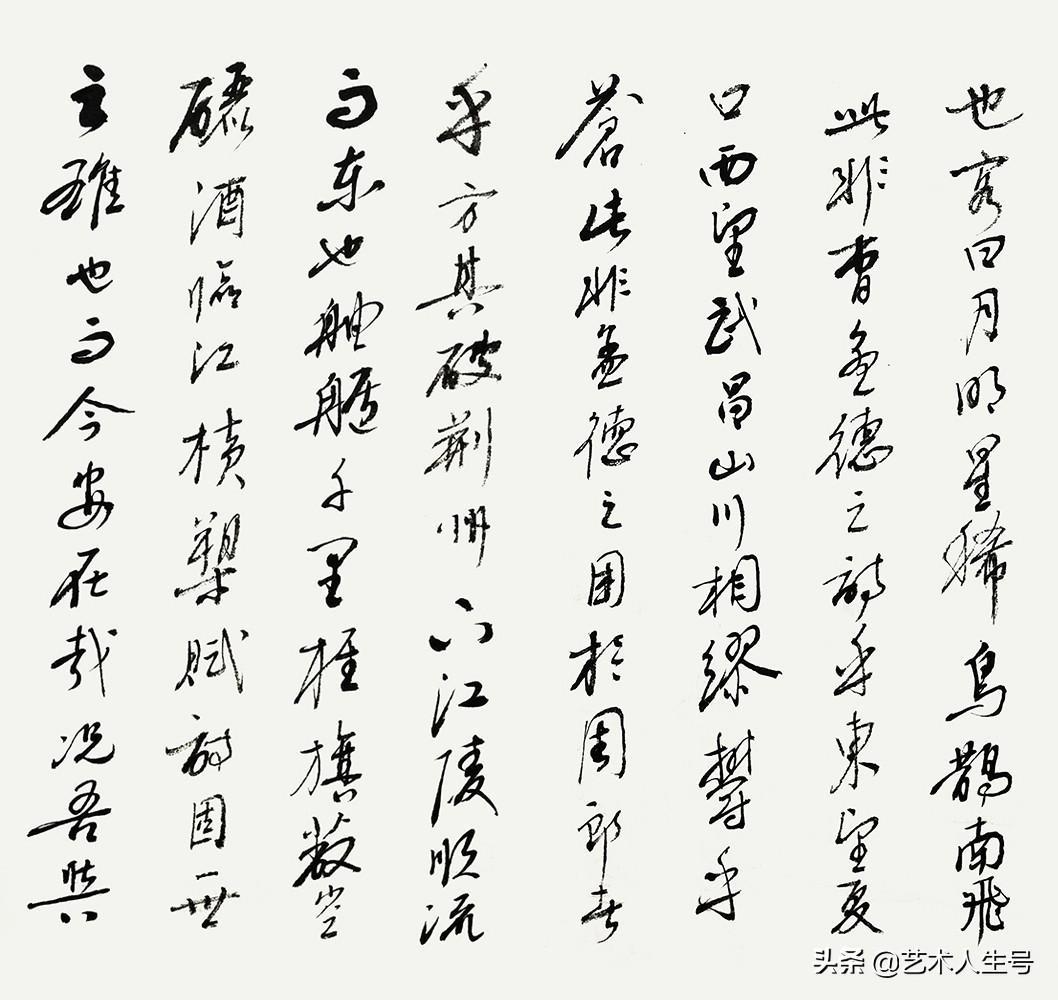 也客曰月明星稀烏鵲南飛
此非曹孟德之詩乎東望夏
口西望武昌山川相繆鬱乎
蒼此非孟德之困於周郎者
乎方其破荊州下江陵順流
而東也舳艫千里旌旗蔽空
釃酒臨江橫槊賦詩固一世
之雄也而今安在哉况吾與
头条 @艺术人生号